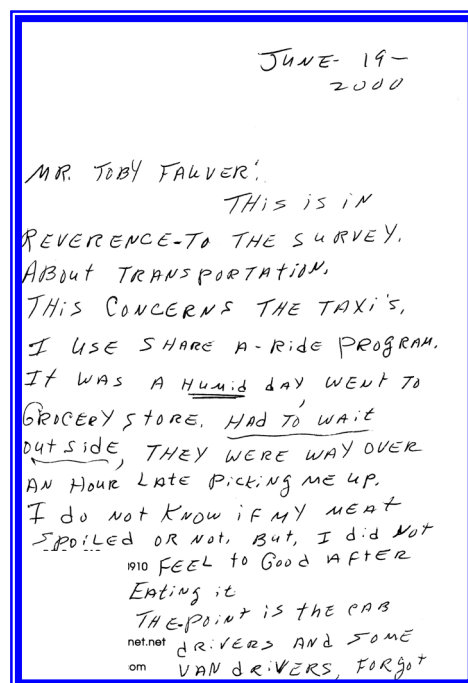 JUNE- 19-
2000
MR. TOBY FAUVER:
THIS IS IN
REVERENCE-TO THE SURVEY.
ABOUT TRANSPORTATION.
THIS CONCERNS THE TAXI'S.
I USE SHARE A-RIDE PROGRAM.
IT WAS A HUMID DAY WENT TO
GROCERY STORE. HAD TO WAIT
OUTSIDE, THEY WERE WAY OVER
AN HOUR LATE PICKING ME UP.
I DO NOT KNOW IF MY MEAT
SPOILED OR NOT. BUT, I DID NOT
1910 FEEL TO GOOD AFTER
EATING IT
THE-POINT IS THE CAB
net.net DRIVERS AND SOME
om VAN DRIVERS, FORGOT